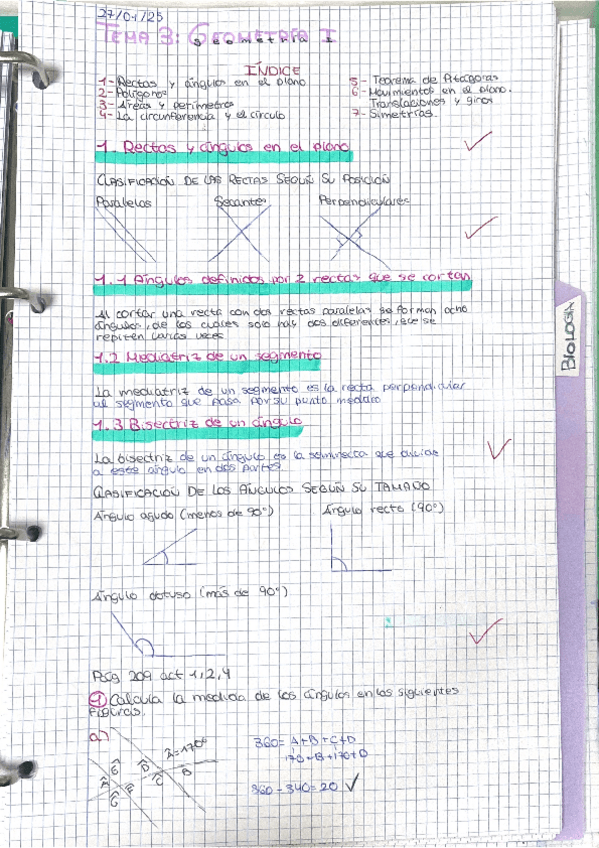 27/01/25
TEMA 3: GEOMETRÍA I
ÍNDICE
1- Rectas y ángulos en el plano
2- Polígonos
3- Áreas y perímetros
4- La circunferencia y el círculo
5- Teorema de Pitágoras
6- Movimientos en el plano.
Translaciones y giros
7- Simetrías.
1. Rectas y ángulos en el plano
CLASIFICACIÓN DE LAS RECTAS SEGÚN SU POSICIÓN
Paralelas Secantes Perpendiculares
1.1 Ángulos definidos por 2 rectas que se cortan
Al cortar una recta con dos rectas paralelas se forman ocho
ángulos, de los cuales solo hay dos diferentes, que se
repiten varias veces
1.2 Mediatriz de un segmento
La mediatriz de un segmento es la recta perpendicular
al segmento que pasa por su punto medio
1.3 Bisectriz de un ángulo
La bisectriz de un ángulo es la semirrecta que divide
a este ángulo en dos partes.
CLASIFICACIÓN DE LOS ÁNGULOS SEGÚN SU TAMAÑO
Ángulo agudo (menos de 90°) Ángulo recto (90°)
Ángulo obtuso (más de 90°)
Pág 209 act 1,2,4
1 Calcula la medida de los ángulos en las siguientes
figuras.
a)
Â=170°
B
Ĉ
D̂
360= A+B+C+D
170+B+170+D
360-340=20
BIOLOGÍA